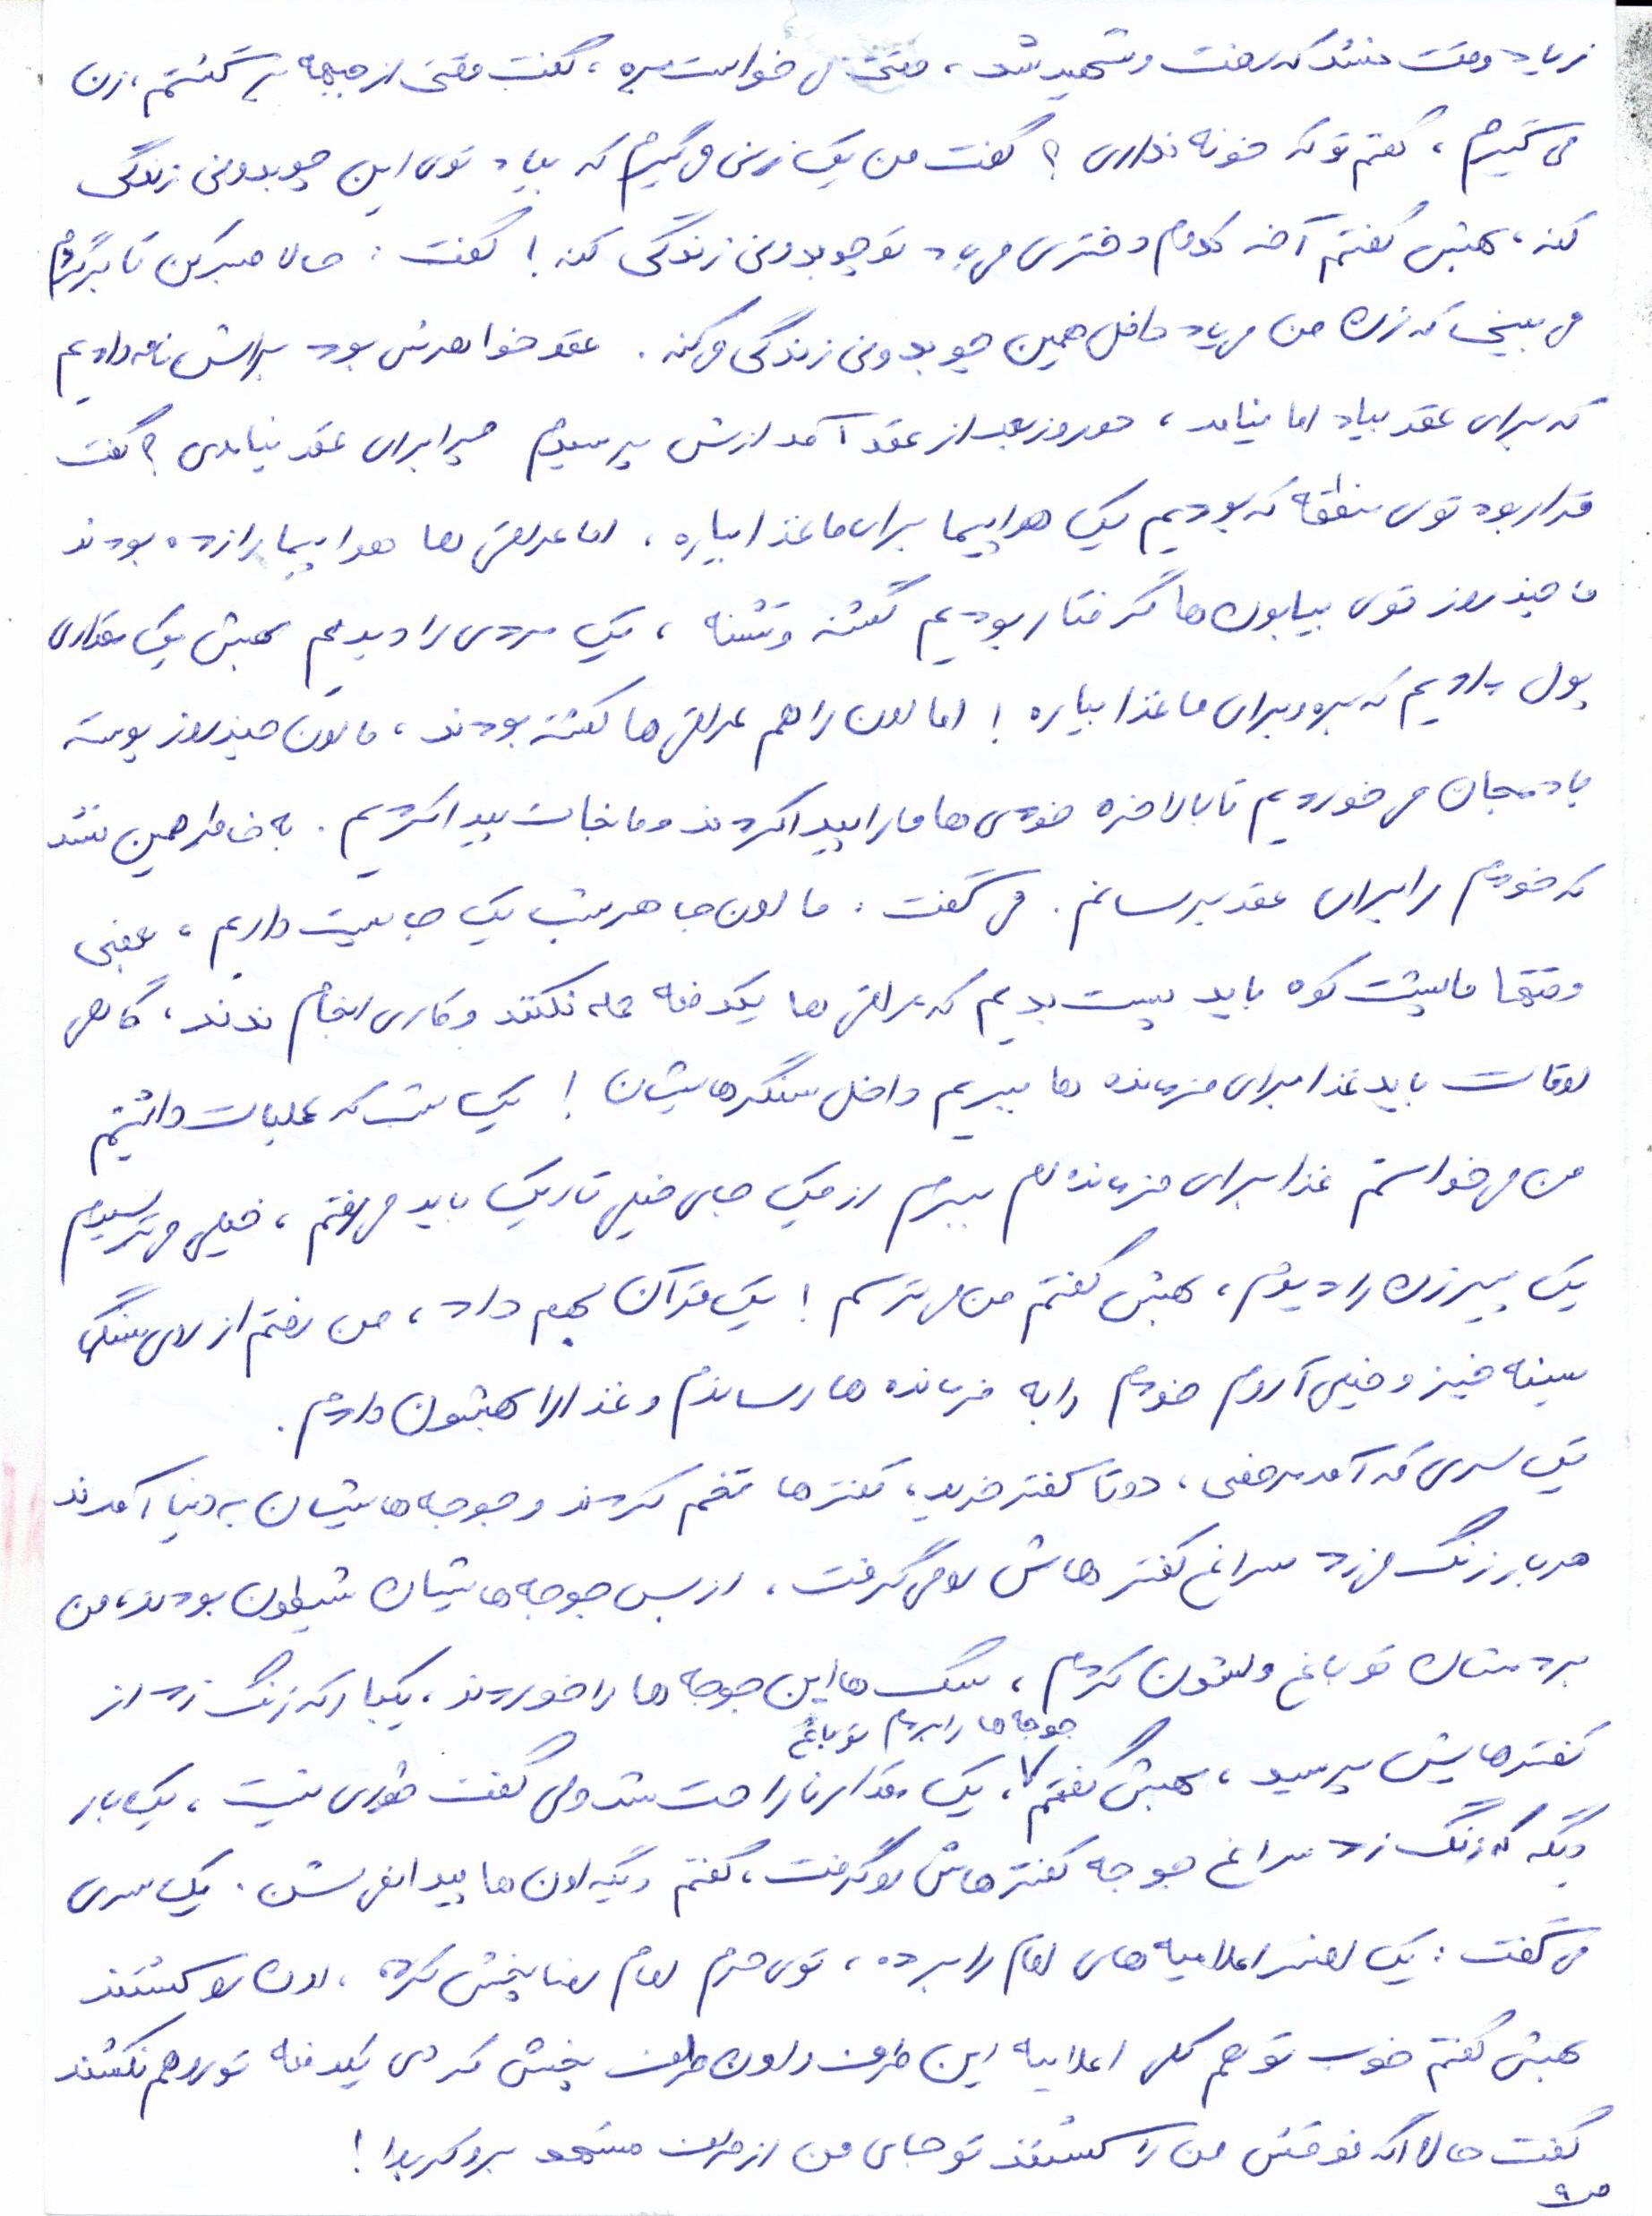 زیاد وقت نشد که رفت و شهید شد، وقتی می خواست بره، گفت وقتی از جبهه برگشتم، زن
می گیرم، گفتم تو که خونه نداری؟ گفت من یک زنی می گیرم که بیاد توی این چوبدونی زندگی
کنه، بهش گفتم آخه کدوم دختری می یاد تو چوبدونی زندگی کنه! گفت: حالا صبر کن تا برگردم
می بینی که زن من می یاد داخل همین چوبدونی زندگی می کنه. عقد خواهرش بود براش نامه دادیم
که برای عقد بیاد اما نیامد، دو روز بعد از عقد آمد ازش پرسیدم چرا برای عقد نیامدی؟ گفت
قرار بود توی منطقه که بودیم یک هواپیما برای ما غذا بیاره، اما عراقی ها هواپیما را زده بودند
ما چند روز توی بیابون ها گرفتار بودیم گشنه و تشنه، یک مردی را دیدیم بهش یک مقداری
پول دادیم که بره و برای ما غذا بیاره! اما اون را هم عراقی ها کشته بودند، ما اون چند روز پوست
بادمجان می خوردیم تا بالاخره خودی ها ما را پیدا کردند و ما نجات پیدا کردیم. به خاطر همین نشد
که خودم را برای عقد برسانم. می گفت: ما اون جا هر شب یک جا پست داریم، بعضی
وقتها ما پشت کوه باید پست بدیم که عراقی ها یکدفعه حمله نکنند و کاری انجام ندند، گاهی
اوقات باید غذا برای فرمانده ها ببریم داخل سنگرهایشان! یک شب که عملیات داشتیم
من می خواستم غذا برای فرمانده ام ببرم از یک جای خیلی تاریک باید می رفتم، خیلی می ترسیدم
یک پیرزن را دیدم، بهش گفتم من می ترسم! یک قرآن بهم داد، من رفتم از لای سنگها
سینه خیز و خیلی آروم خودم را به فرمانده ها رساندم و غذا را بهشون دادم.
یک سری که آمد مرخصی، دو تا کفتر خرید، کفترها تخم کردند و جوجه هایشان به دنیا آمدند
هر بار زنگ می زد سراغ کفترهاش رو می گرفت، از بس جوجه هایشان شیطون بودند، من
بردمشان تو باغ ولشون کردم، سگ ها این جوجه ها را خوردند، یکبار که زنگ زد از
کفترهایش پرسید، بهش گفتم جوجه ها را بردم تو باغ، یک مقدار ناراحت شد ولی گفت طوری نیست، یک بار
دیگه که زنگ زد سراغ جوجه کفترهاش رو گرفت، گفتم دیگه اون ها پیدا نمی شن. یک سری
می گفت: یک نفر اعلامیه های امام را برده، توی حرم امام رضا پخش کرده، اون رو کشتند
بهش گفتم خوب تو هم کلی اعلامیه این طرف و اون طرف پخش کردی یکدفعه تو رو هم نکشند
گفت حالا اگه موقعش من را کشتند تو جای من از طرف مشهد برو کربلا!
ص ۹